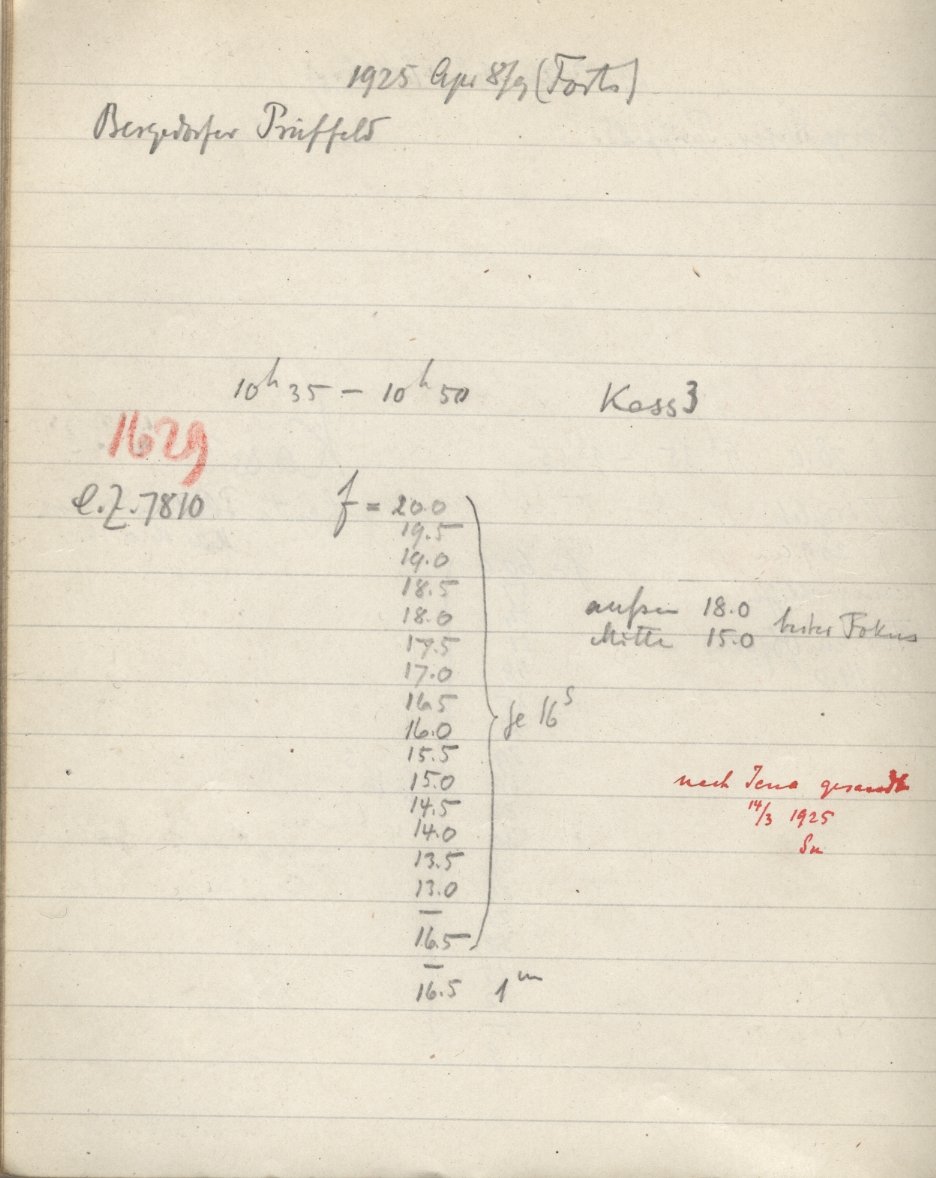 1925 Apr 8/9 (Forts)
Bergedorfer Prüffeld
10h 35 – 10h 50 Kass 3
1629
l.Z. 7810 f = 20.0
19.5
19.0
18.5
18.0
17.5
17.0
16.5
16.0
15.5
15.0
14.5
14.0
13.5
13.0
16.5
16.5 1m
je 16s
außen 18.0
Mitte 15.0
bester Fokus
nach Jena gesandt
14/3 1925